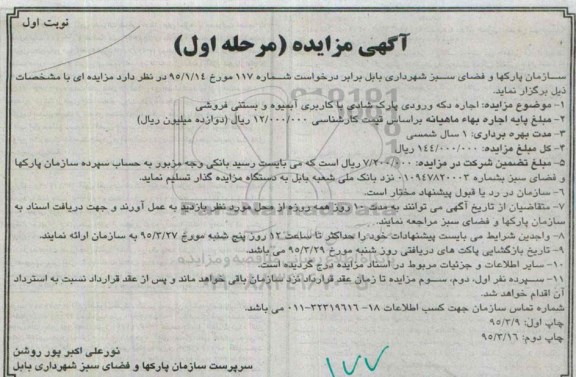 نوبت اول
آگهی مزایده (مرحله اول)
سازمان پارکها و فضای سبز شهرداری بابل برابر درخواست شماره ۱۱۷ مورخ ۹۵/۱/۱۴ در نظر دارد مزایده ای با مشخصات
ذیل برگزار نماید.
۱- موضوع مزایده: اجاره دکه ورودی پارک شادی با کاربری آبمیوه و بستنی فروشی
۲- مبلغ پایه اجاره بهاء ماهیانه براساس قیمت کارشناسی ۱۲/۰۰۰/۰۰۰ ریال (دوازده میلیون ریال)
۳- مدت بهره برداری: ۱ سال شمسی
۴- کل مبلغ مزایده: ۱۴۴/۰۰۰/۰۰۰ ریال
۵- مبلغ تضمین شرکت در مزایده: ۷/۲۰۰/۰۰۰ ریال است که می بایست رسید بانکی وجه مزبور به حساب سپرده سازمان پارکها
و فضای سبز بشماره ۰۱۰۹۴۷۸۲۰۰۰۳ نزد بانک ملی شعبه بابل به دستگاه مزایده گذار تسلیم نماید.
۶- سازمان در رد یا قبول پیشنهاد مختار است.
۷- متقاضیان از تاریخ آگهی می توانند به مدت ۱۰ روز همه روزه از محل مورد نظر بازدید به عمل آورند و جهت دریافت اسناد به
سازمان پارکها و فضای سبز مراجعه نمایند.
۸- واجدین شرایط می بایست پیشنهادات خود را حداکثر تا ساعت ۱۲ روز پنج شنبه مورخ ۹۵/۳/۲۷ به سازمان ارائه نمایند.
۹- تاریخ بازگشایی پاکت های دریافتی روز شنبه مورخ ۹۵/۳/۲۹ می باشد.
۱۰- سایر اطلاعات و جزئیات مربوط در اسناد مزایده درج گردیده است.
۱۱- سپرده نفر اول، دوم، سوم مزایده تا زمان عقد قرارداد نزد سازمان باقی خواهد ماند و پس از عقد قرارداد نسبت به استرداد
آن اقدام خواهد شد.
شماره تماس سازمان جهت کسب اطلاعات ۱۸-۳۲۳۱۹۶۱۶-۰۱۱ می باشد.
چاپ اول: ۹۵/۳/۹
چاپ دوم: ۹۵/۳/۱۶
نورعلی اکبر پور روشن
سرپرست سازمان پارکها و فضای سبز شهرداری بابل
۱۷۷